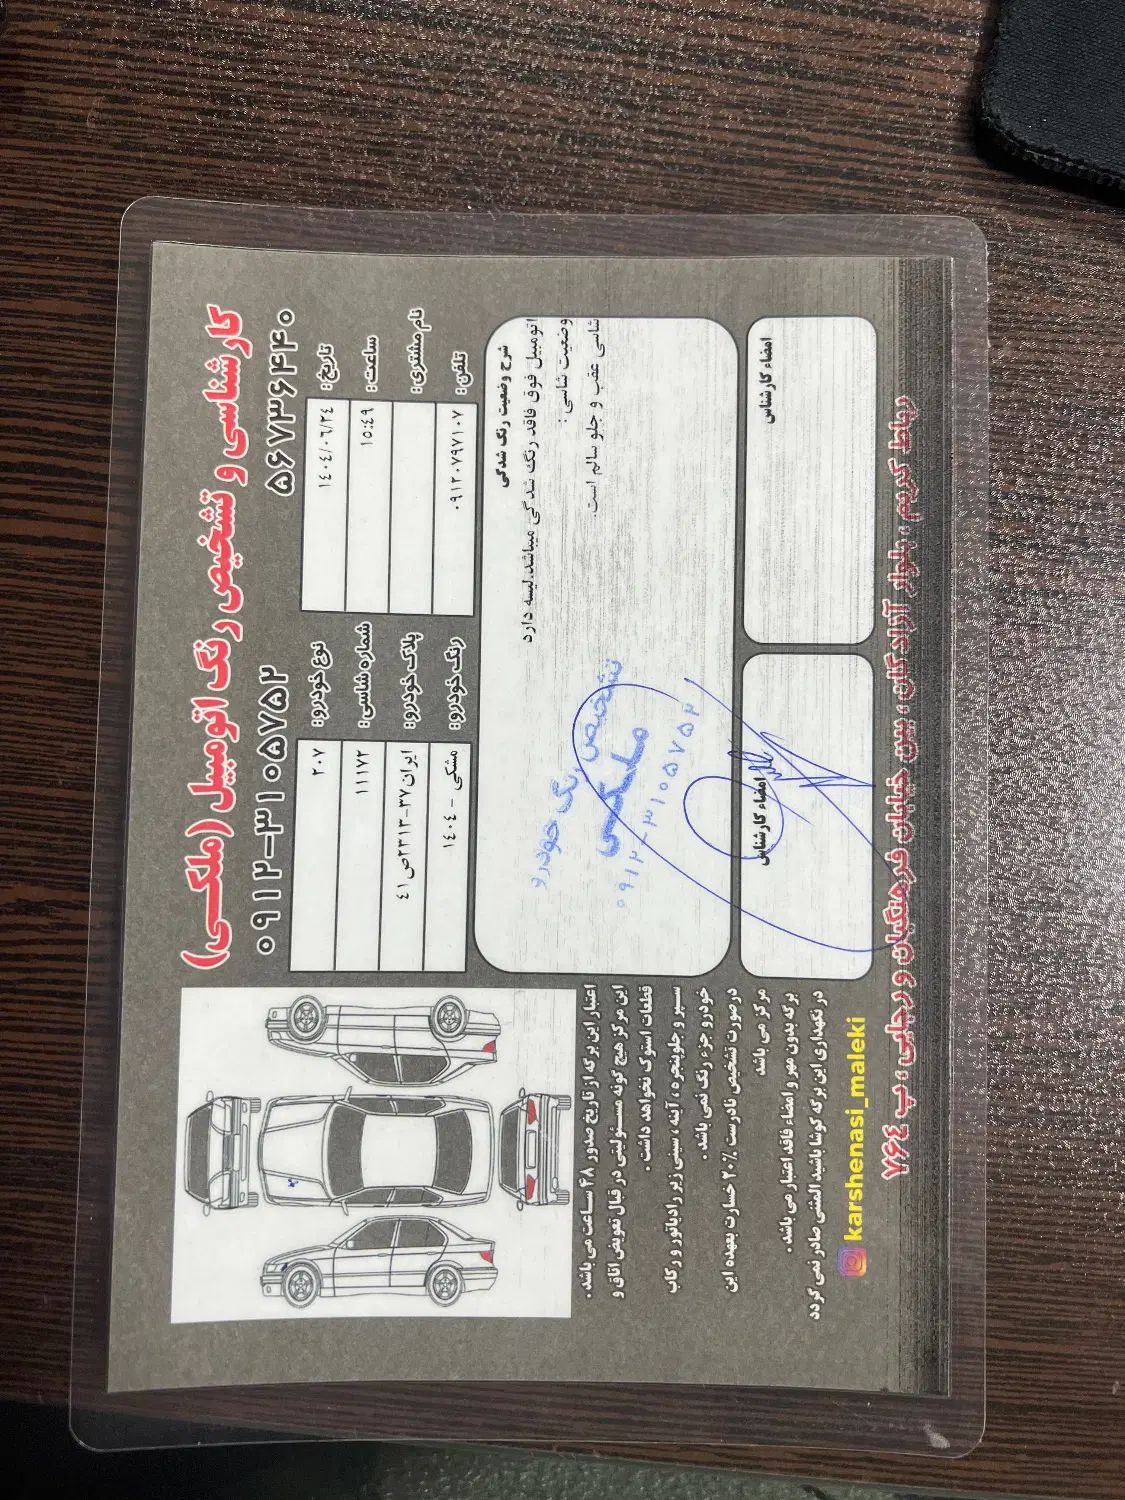 کارشناسی و تشخیص رنگ اتومبیل (ملکی)
۵۶۷۳۶۴۴۰
۰۹۱۲-۳۱۰۵۷۵۲
تاریخ: ۱٤۰٤/۰٦/۲٤
نوع خودرو: ۲۰۷
ساعت: ۱٥:٤۹
شماره شاسی: ۱۱۱۷۲
نام مشتری:
پلاک خودرو: ایران۳۷-۲۱۳ص٤۱
تلفن: ۰۹۱۲۰۷۹۷۱۰۷
رنگ خودرو: مشکی - ۱٤۰٤
شرح وضعیت رنگ شدگی
اتومبیل فوق فاقد رنگ شدگی میباشد.لیسه دارد
وضعیت شاسی :
شاسی عقب و جلو سالم است.
تشخیص رنگ خودرو
ملکی
۰۹۱۲-۳۱۰۵۷۵۲
امضاء کارشناس
امضاء کارشناس
اعتبار این برگه از تاریخ صدور ۴۸ ساعت می باشد.
این مرکز هیچ گونه مسئولیتی در قبال تعویض اتاق و
قطعات استوک نخواهد داشت.
سپر و جلوپنجره ، آینه ، سینی زیر رادیاتور و رکاب
خودرو جزء رنگ نمی باشد.
درصورت تشخیص نادرست ۲۰٪ خسارت بعهده این
مرکز می باشد
برگه بدون مهر و امضاء فاقد اعتبار می باشد.
در نگهداری این برگه کوشا باشید المثنی صادر نمی گردد
karshenasi_maleki
رباط کریم ، بلوار آزادگان ، بین خیابان فرهنگیان و رجایی ، پ ۷۶٤